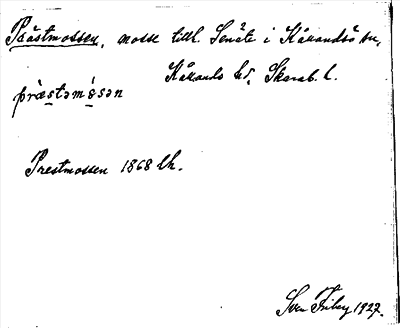 Prästmossen, mosse till Senäte i Kållandsö sn,
Kållands hd, Skarab. l.
præstəmósən
Prestmossen 1868 Uk.
Sven Friby 1927.